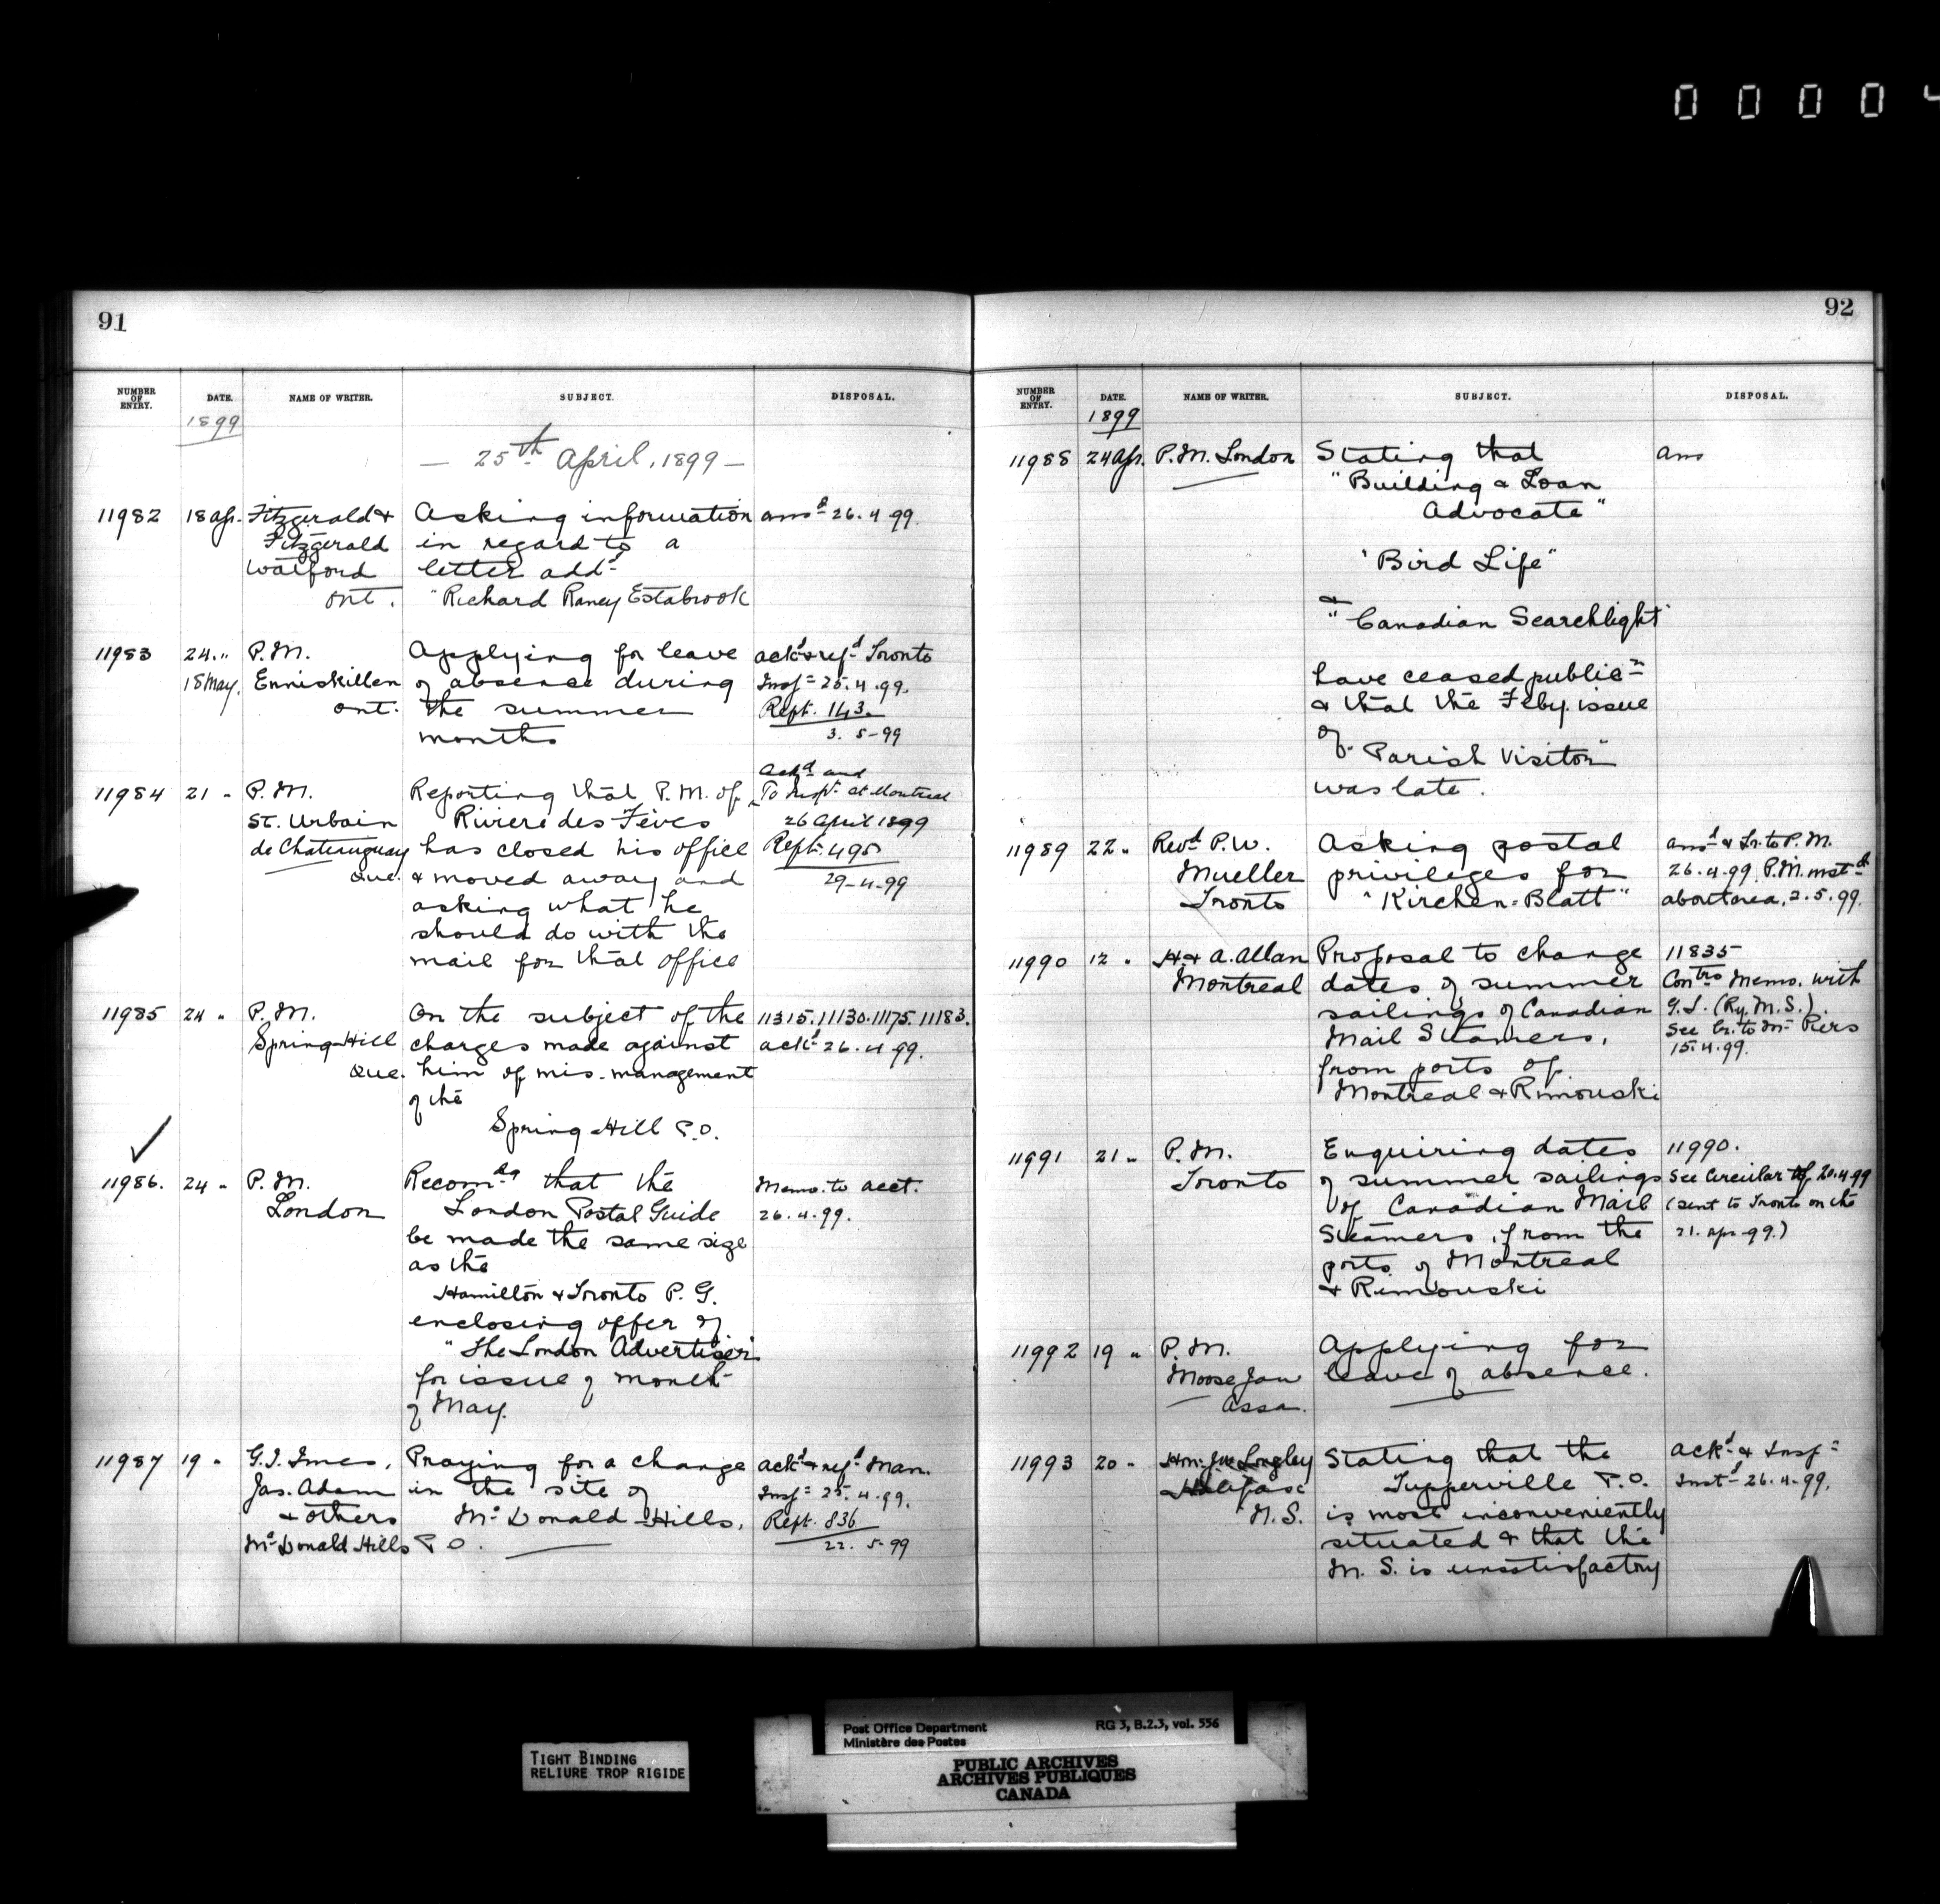 0 0 0 0 4
91
NUMBER OF ENTRY. DATE. NAME OF WRITER. SUBJECT. DISPOSAL.
1899
— 25th April, 1899 —
11982 18 Ap. Fitzgerald & Asking information ansd 26.4.99.
Fitzgerald in regard to a
Watford letter addd
Ont. "Richard Raney Estabrook
11983 24 " P.M. Applying for leave ackd & refd Toronto
18 May. Enniskillen of absence during Insp. 25.4.99.
Ont. the summer Rept. 143.
months 3. 5-99
Ackd and
11984 21 " P.M. Reporting that P.M. of To Inspr. at Montreal
St. Urbain Riviere des Feves 26 April 1899
de Chateauguay has closed his office Rept. 495
Que. & moved away and 29-4-99
asking what he
should do with the
mail for that office
11985 24 " P.M. On the subject of the 11315.11130.11175.11183.
Spring Hill charges made against ackd 26.4.99.
Que. him of mis-management
of the
Spring Hill P.O.
11986. 24 " P.M. Recomdg that the Memo. to acct.
London London Postal Guide 26.4.99.
be made the same size
as the
Hamilton & Toronto P.G.
enclosing offer of
"The London Advertiser"
for issue of month
of May.
11987 19 " G.I. Imes, Praying for a change ackd & refd Man.
Jas. Adam in the site of Insp. 25.4.99.
& others McDonald Hills, Rept. 836
McDonald Hills P.O. 22. 5-99
92
NUMBER OF ENTRY. DATE. NAME OF WRITER. SUBJECT. DISPOSAL.
1899
11988 24 Ap. P.M. London Stating that ans
"Building & Loan
Advocate"
"Bird Life"
&
"Canadian Searchlight"
have ceased publicn
& that the Feby. issue
of
"Parish Visitor"
was late.
11989 22 " Revd P.W. Asking postal ansd & Lr. to P.M.
Mueller privileges for 26.4.99. P.M. instd
Toronto "Kirchen=Blatt" 2.5.99.
11990 12 " H & A. Allan Proposal to change 11835
Montreal dates of summer Contrs Memo. with
sailings of Canadian G.S. (Ry. M.S.).
Mail Steamers, See Lr. to Mr Piers
from ports of 15.4.99.
Montreal & Rimouski
11991 21 " P.M. Enquiring dates 11990.
Toronto of summer sailings See Circular of 20.4.99
of Canadian Mail (sent to Toronto on the
Steamers, from the 21. Apr. 99.)
ports of Montreal
& Rimouski
11992 19 " P.M. Applying for
Moose Jaw leave of absence.
Assa.
11993 20 " Hon. Longley Stating that the ackd & Insp.
Halifax Tupperville P.O. Instd 26.4.99.
N.S. is most inconveniently
situated & that the
M.S. is unsatisfactory
TIGHT BINDING
RELIURE TROP RIGIDE
Post Office Department RG 3, B.2.3, vol. 556
Ministère des Postes
PUBLIC ARCHIVES
ARCHIVES PUBLIQUES
CANADA